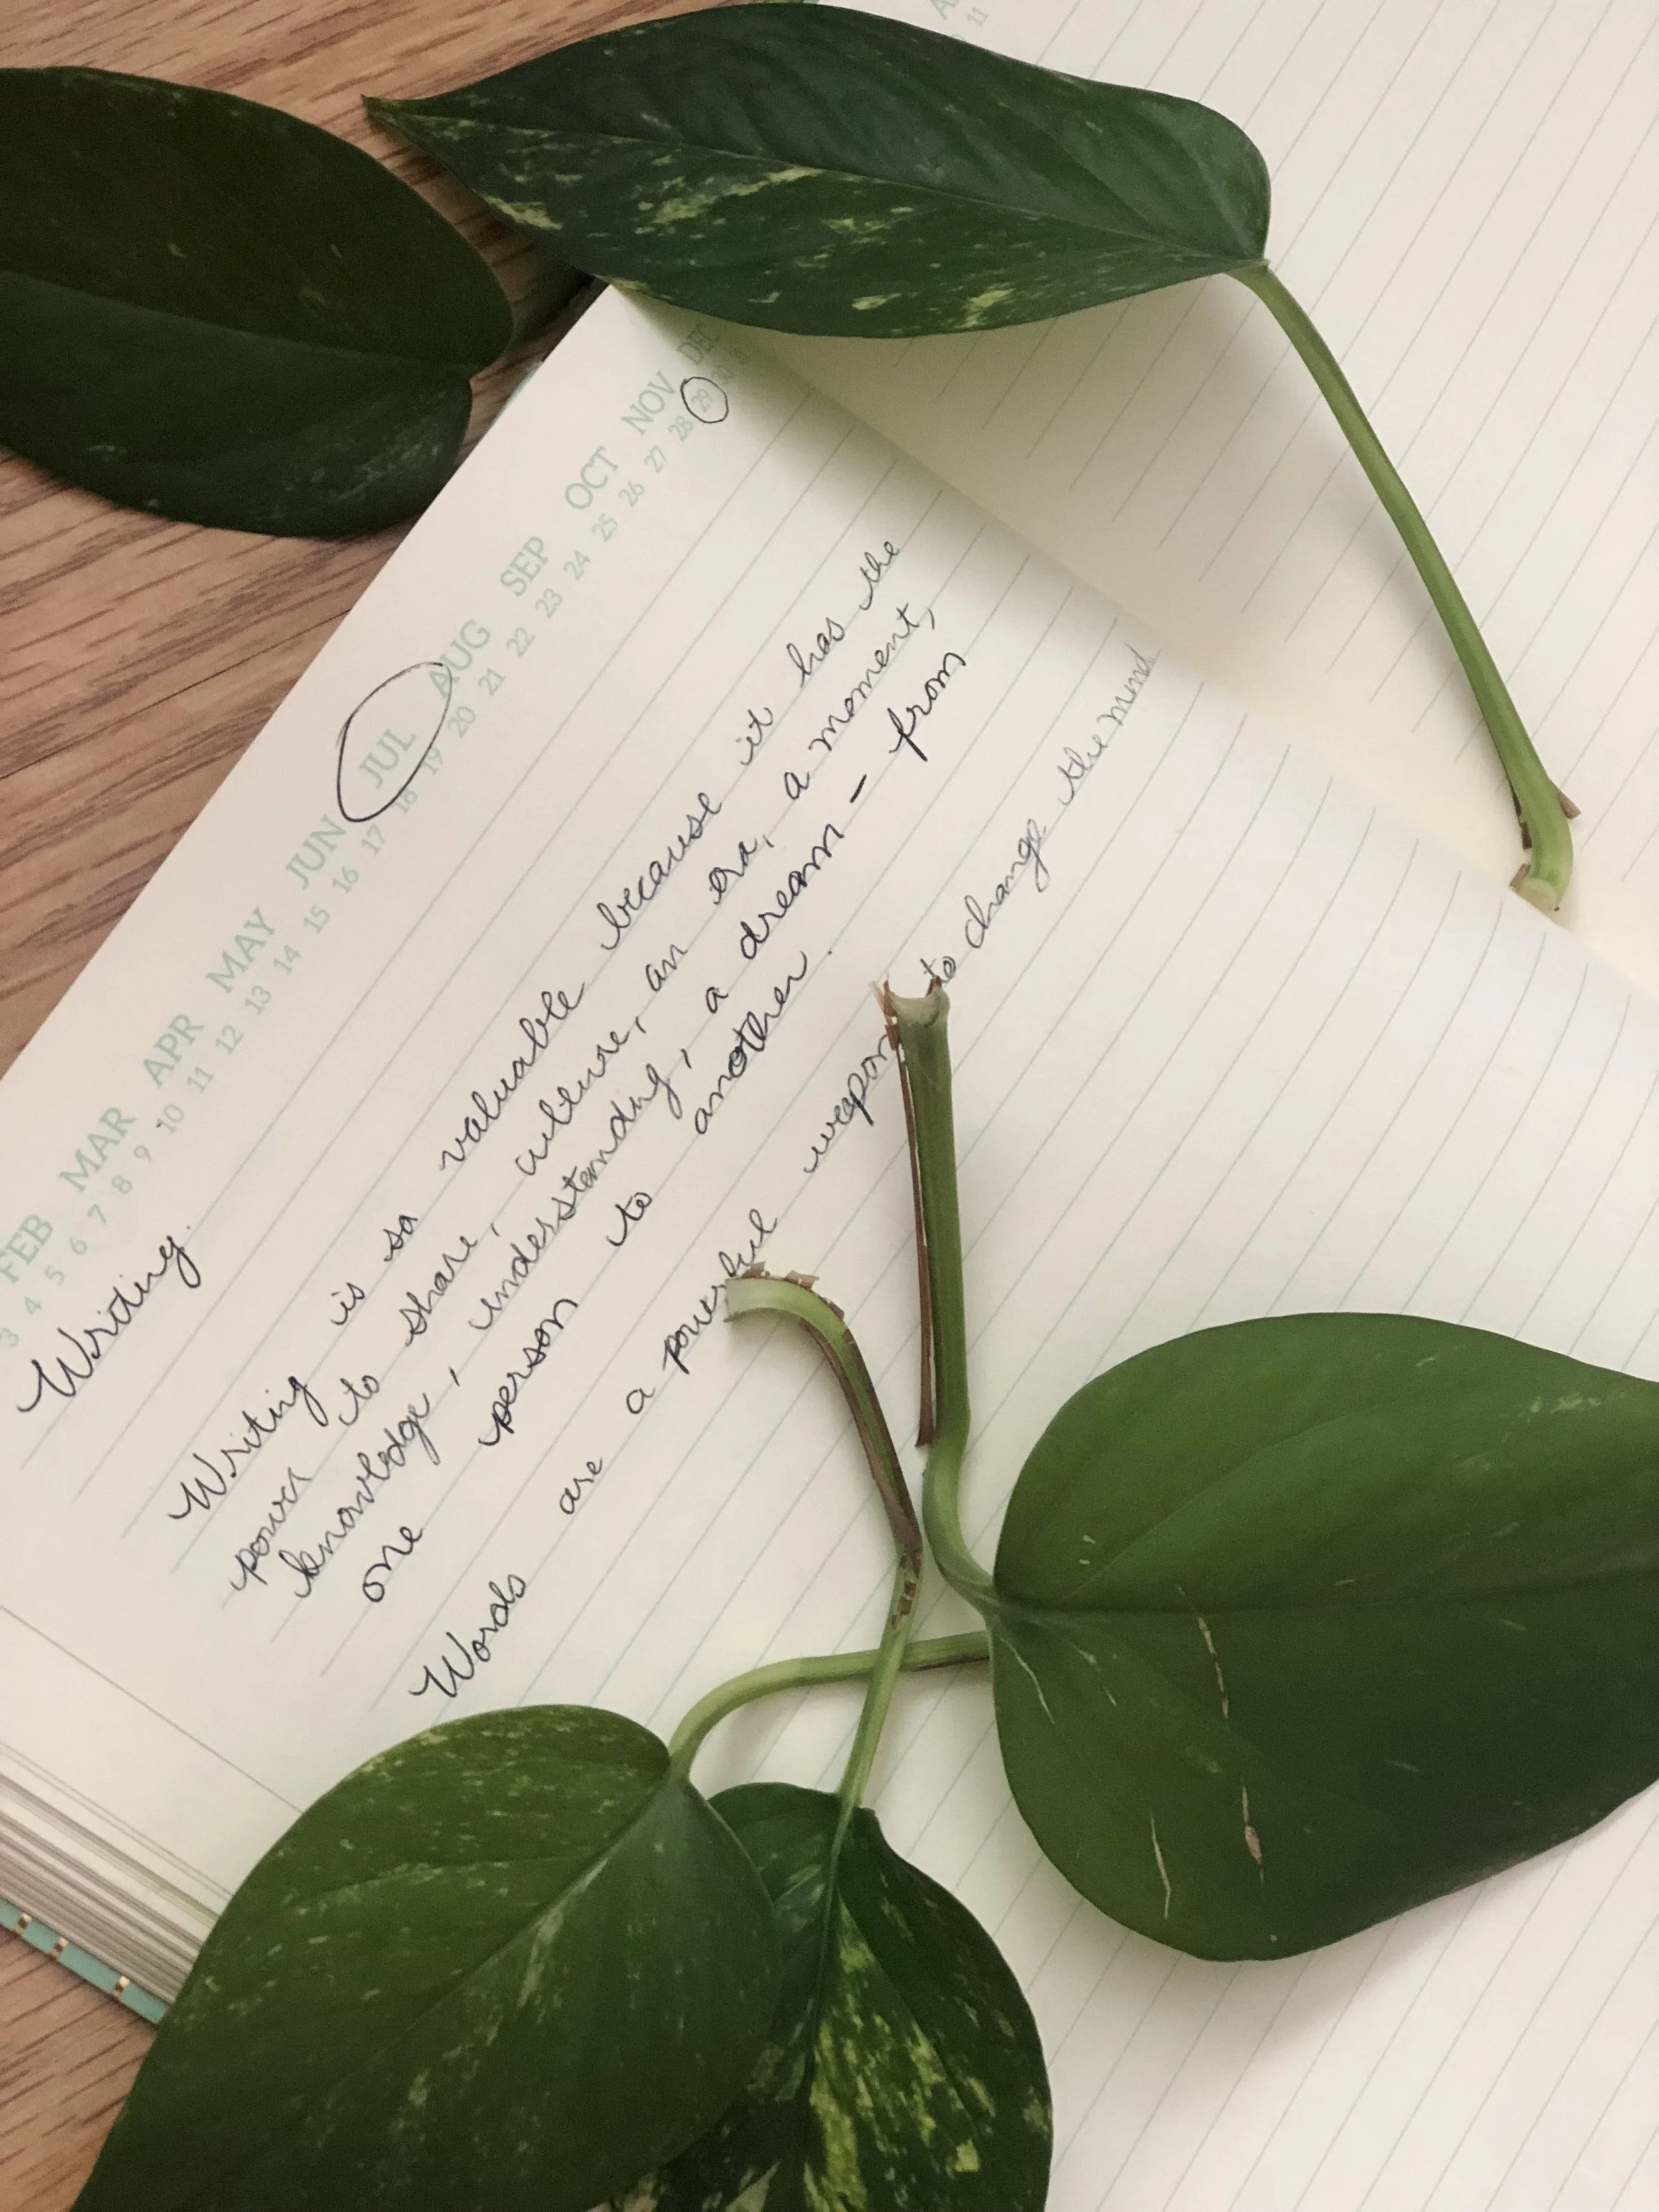 FEB MAR APR MAY JUN JUL AUG SEP OCT NOV DEC
3 4 5 6 7 8 9 10 11 12 13 14 15 16 17 18 19 20 21 22 23 24 25 26 27 28 29 30 31
11
Writing.
Writing is so valuable because it has the
power to share, culture, an era, a moment,
knowledge, understanding, a dream – from
one person to another.
Words are a powerful weapon to change the mind